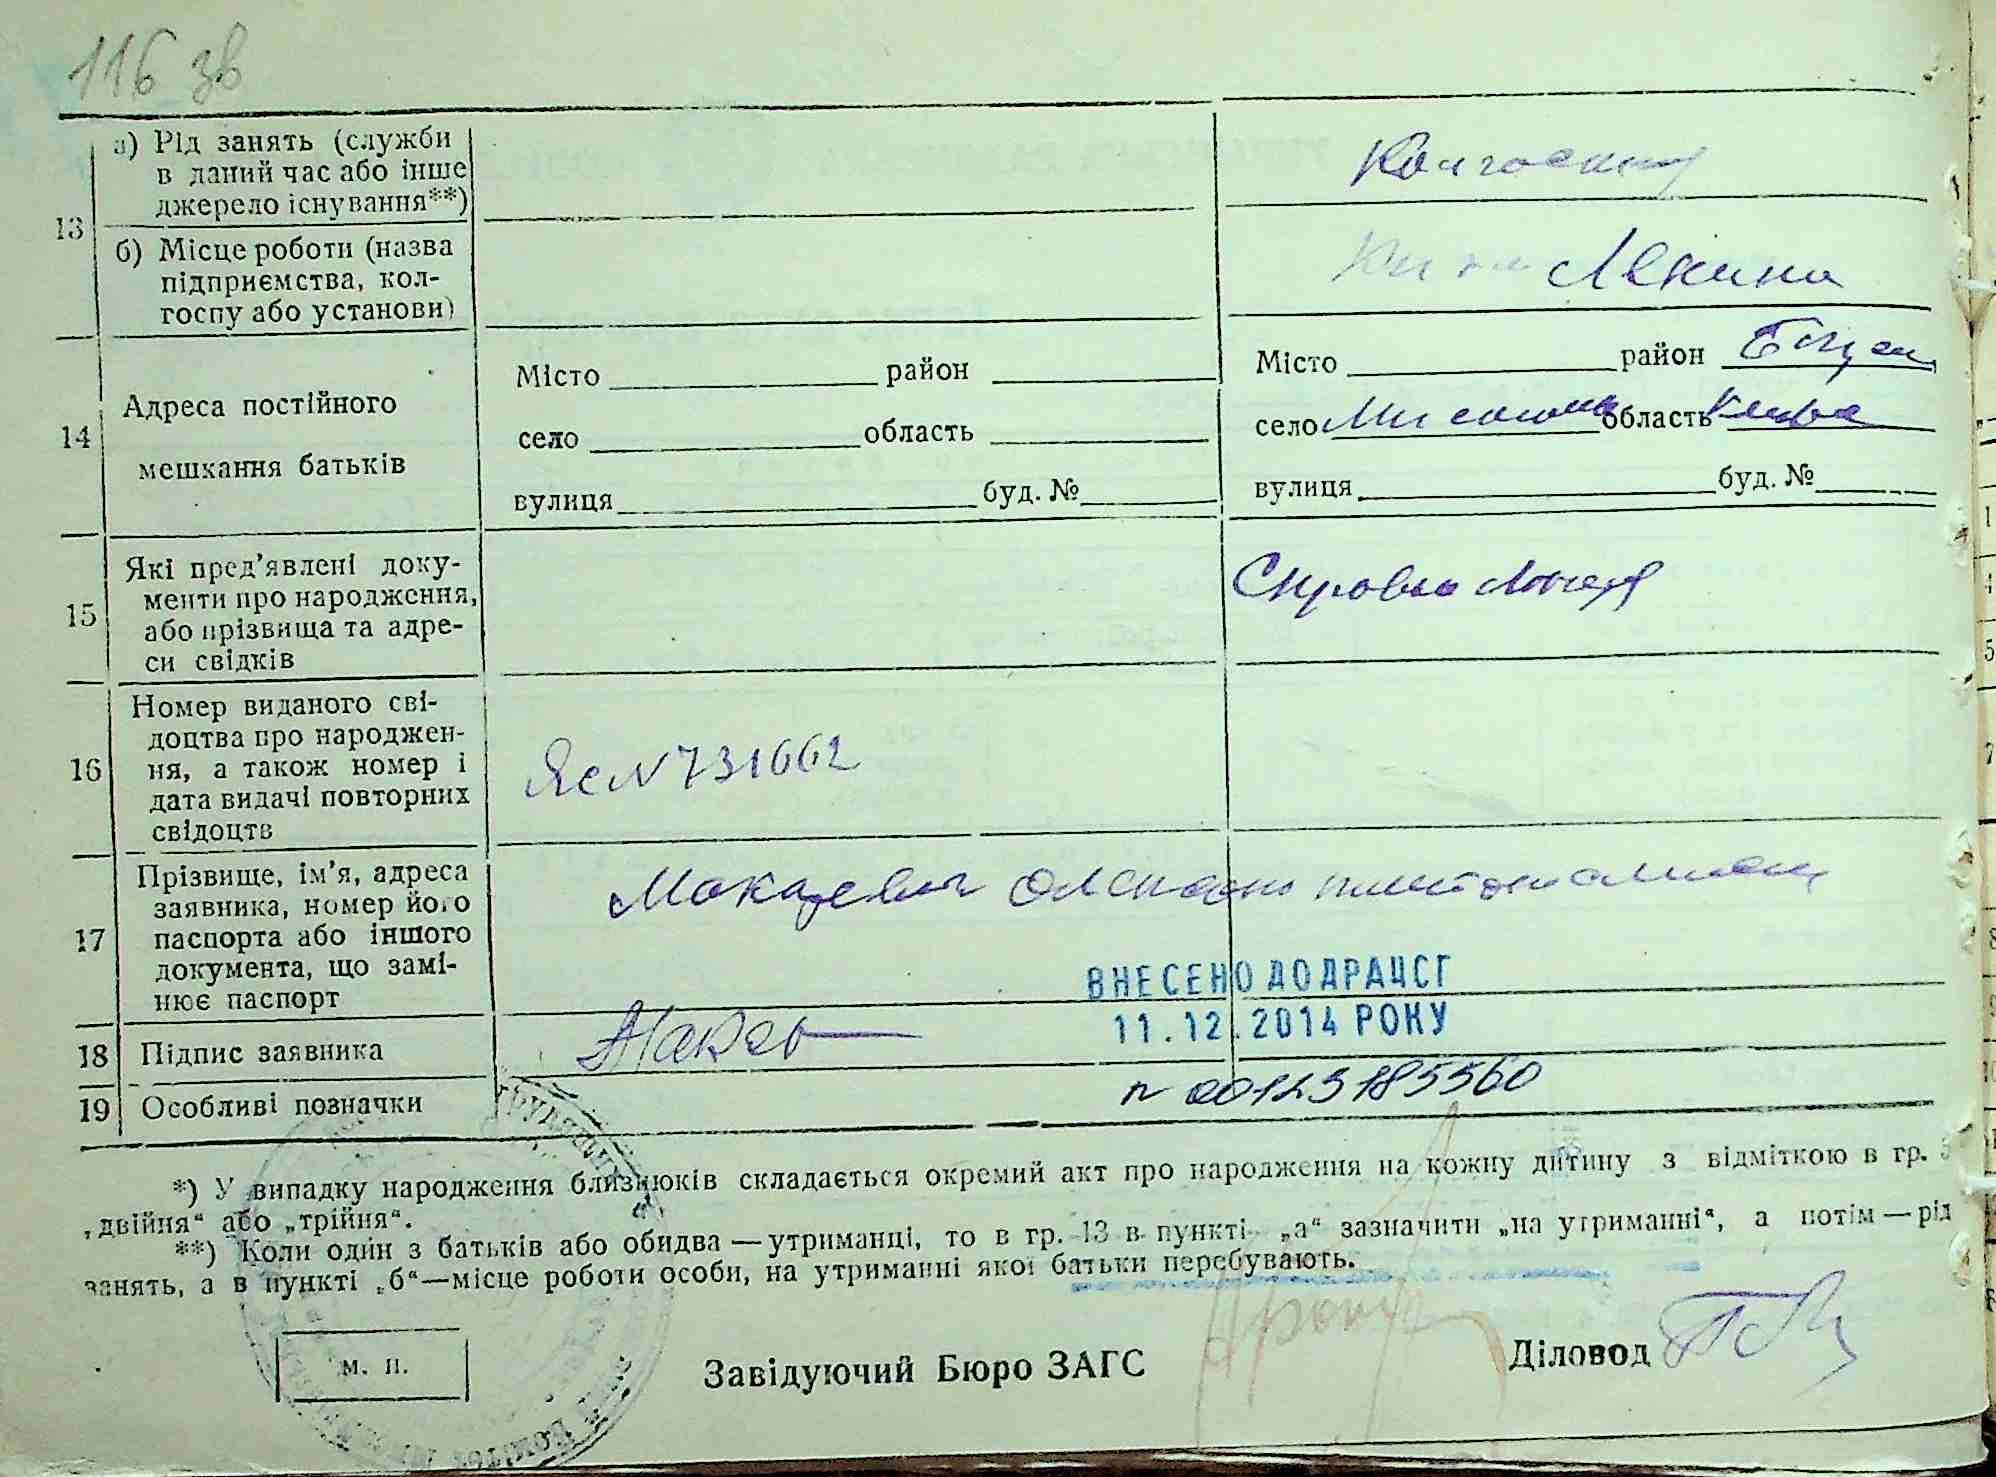 116 зв
а) Рід занять (служби
в даний час або інше
джерело існування**)
Колгоспниц
13
б) Місце роботи (назва
підприємства, кол-
госпу або установи)
Леніна
14
Адреса постійного
мешкання батьків
Місто район
село область
вулиця буд. №
Місто район
село область
вулиця буд. №
15
Які пред'явлені доку-
менти про народження,
або прізвища та адре-
си свідків
16
Номер виданого сві-
доцтва про народжен-
ня, а також номер і
дата видачі повторних
свідоцтв
ЯС N 731662
17
Прізвище, ім'я, адреса
заявника, номер його
паспорта або іншого
документа, що замі-
нює паспорт
Макаревич
ВНЕСЕНО ДО ДРАЦСГ
11.12.2014 РОКУ
18 Підпис заявника
19 Особливі позначки
N 00125185560
*) У випадку народження близнюків складається окремий акт про народження на кожну дитину з відміткою в гр. 5
„двійня“ або „трійня“.
**) Коли один з батьків або обидва — утриманці, то в гр. 13 в пункті „а“ зазначити „на утриманні“, а потім — рід
занять, а в пункті „б“—місце роботи особи, на утриманні якої батьки перебувають.
м. п.
Завідуючий Бюро ЗАГС
Діловод